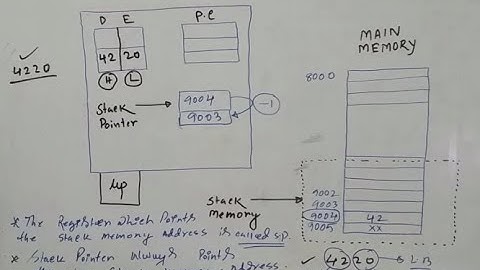 D E P.C
✓
4220
42 20
H L
MAIN
MEMORY
8000
Stack
Pointer
9004
9003
-1
μp
Stack
Memory
9002
9003
9004 42
9005 XX
* The Register which Points
the stack memory address is called S.P.
* Stack Pointer Always Points
✓ 4220
address.